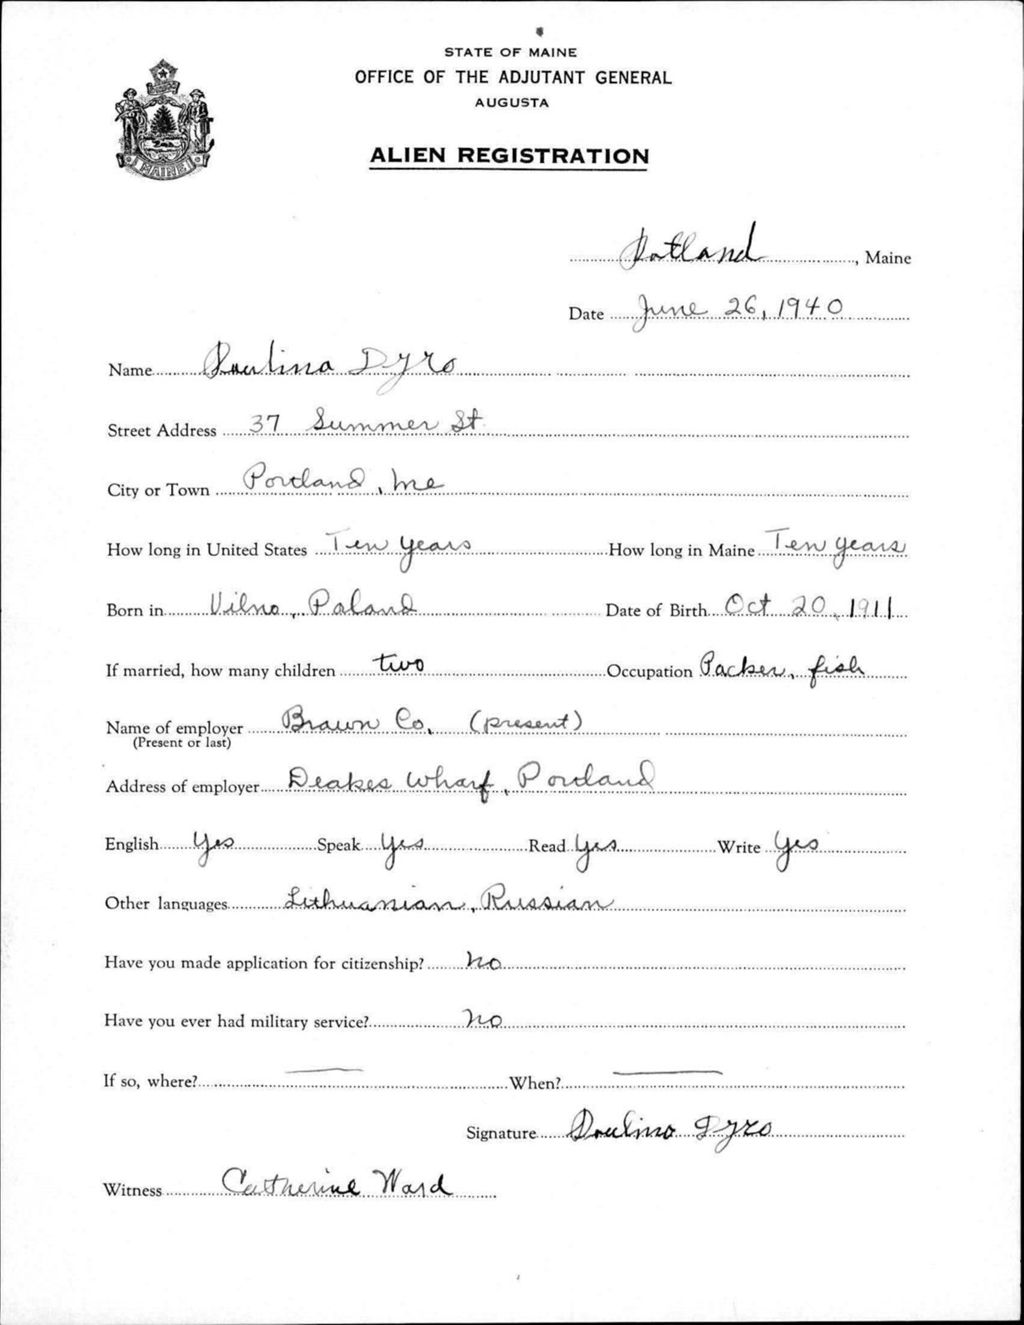 STATE OF MAINE
OFFICE OF THE ADJUTANT GENERAL
AUGUSTA
MAINE
ALIEN REGISTRATION
Portland, Maine
Date June 26, 1940
Name Paulina Dyro
Street Address 37 Summer St
City or Town Portland, Me
How long in United States Ten years How long in Maine Ten years
Born in Vilno, Poland Date of Birth Oct 20, 1911
If married, how many children two Occupation Packer, fish
Name of employer Brawn Co. (present)
(Present or last)
Address of employer Deakes Wharf, Portland
English Yes Speak Yes Read Yes Write Yes
Other languages Lithuanian, Russian
Have you made application for citizenship? no
Have you ever had military service? no
If so, where? When?
Signature Paulina Dyro
Witness Catherine Ward